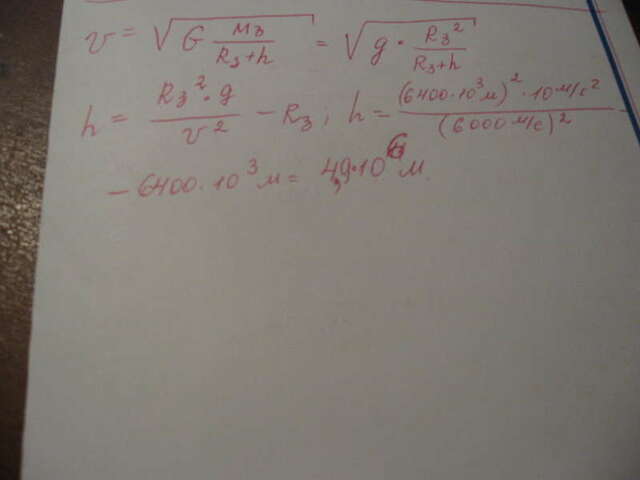 v = √(G Mз / (Rз + h)) = √(g · Rз² / (Rз + h))
h = Rз² · g / v² − Rз ; h = (6400·10³м)² · 10 м/с² / (6000 м/с)²
− 6400·10³ м = 4,9·10⁶ м.